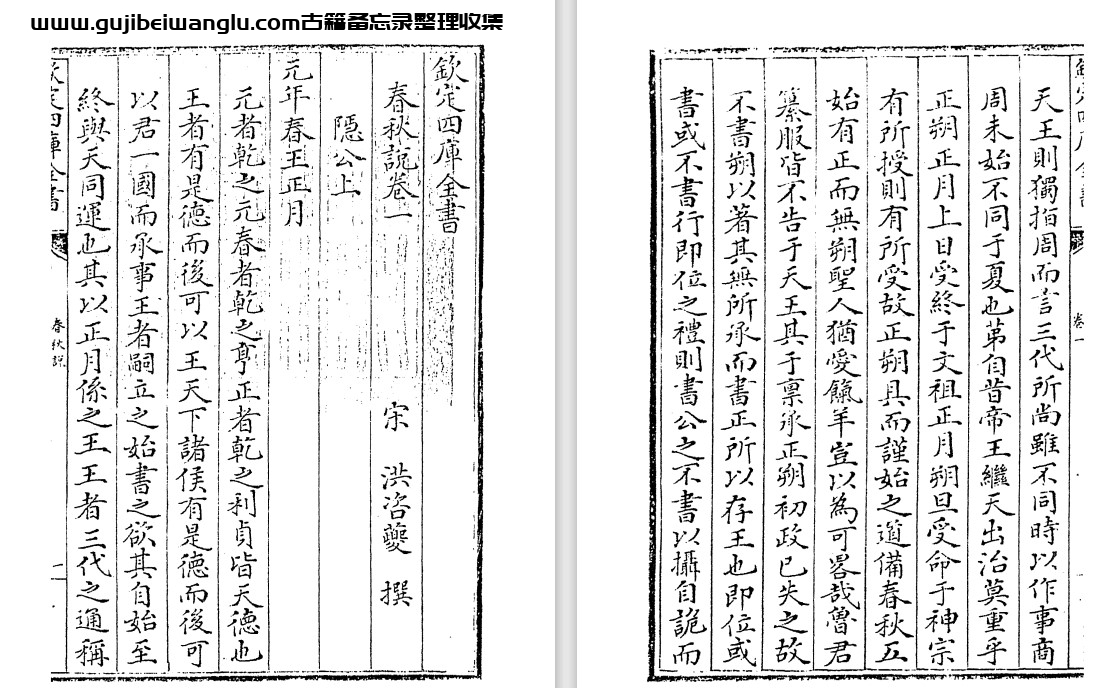 www.gujibeiwanglu.com古籍备忘录整理收集
欽定四庫全書
春秋說卷一
宋 洪咨夔 撰
隱公上
元年春王正月
元者乾之元春者乾之亨正者乾之利貞皆天德也
王者有是德而後可以王天下諸侯有是德而後可
以君一國而承事王者嗣立之始書之欲其自始至
終與天同運也其以正月係之王王者三代之通稱
欽定四庫全書
春秋說
一
欽定四庫全書
卷一
天王則獨指周而言三代所尚雖不同時以作事商
周未始不同于夏也苐自昔帝王繼天出治莫重乎
正朔正月上日受終于文祖正月朔旦受命于神宗
有所授則有所受故正朔具而謹始之道備春秋五
始有正而無朔聖人猶愛餼羊豈以為可畧哉魯君
纂服皆不告于天王其于禀承正朔初政已失之故
不書朔以著其無所承而書正所以存王也即位或
書或不書行即位之禮則書公之不書以攝自詭而